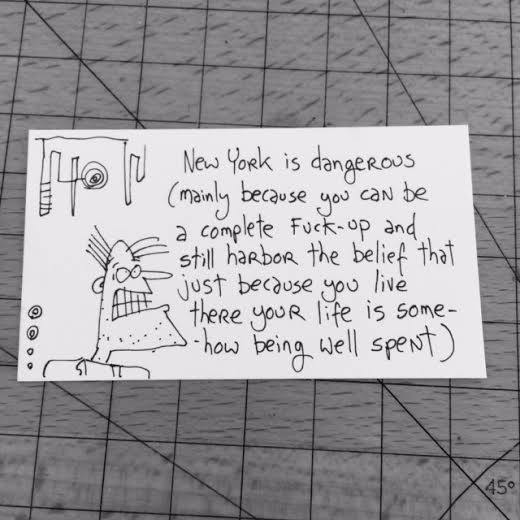 New York is dangerous
(mainly because you can be
a complete Fuck-up and
still harbor the belief that
just because you live
there your life is some-
-how being well spent)
45°